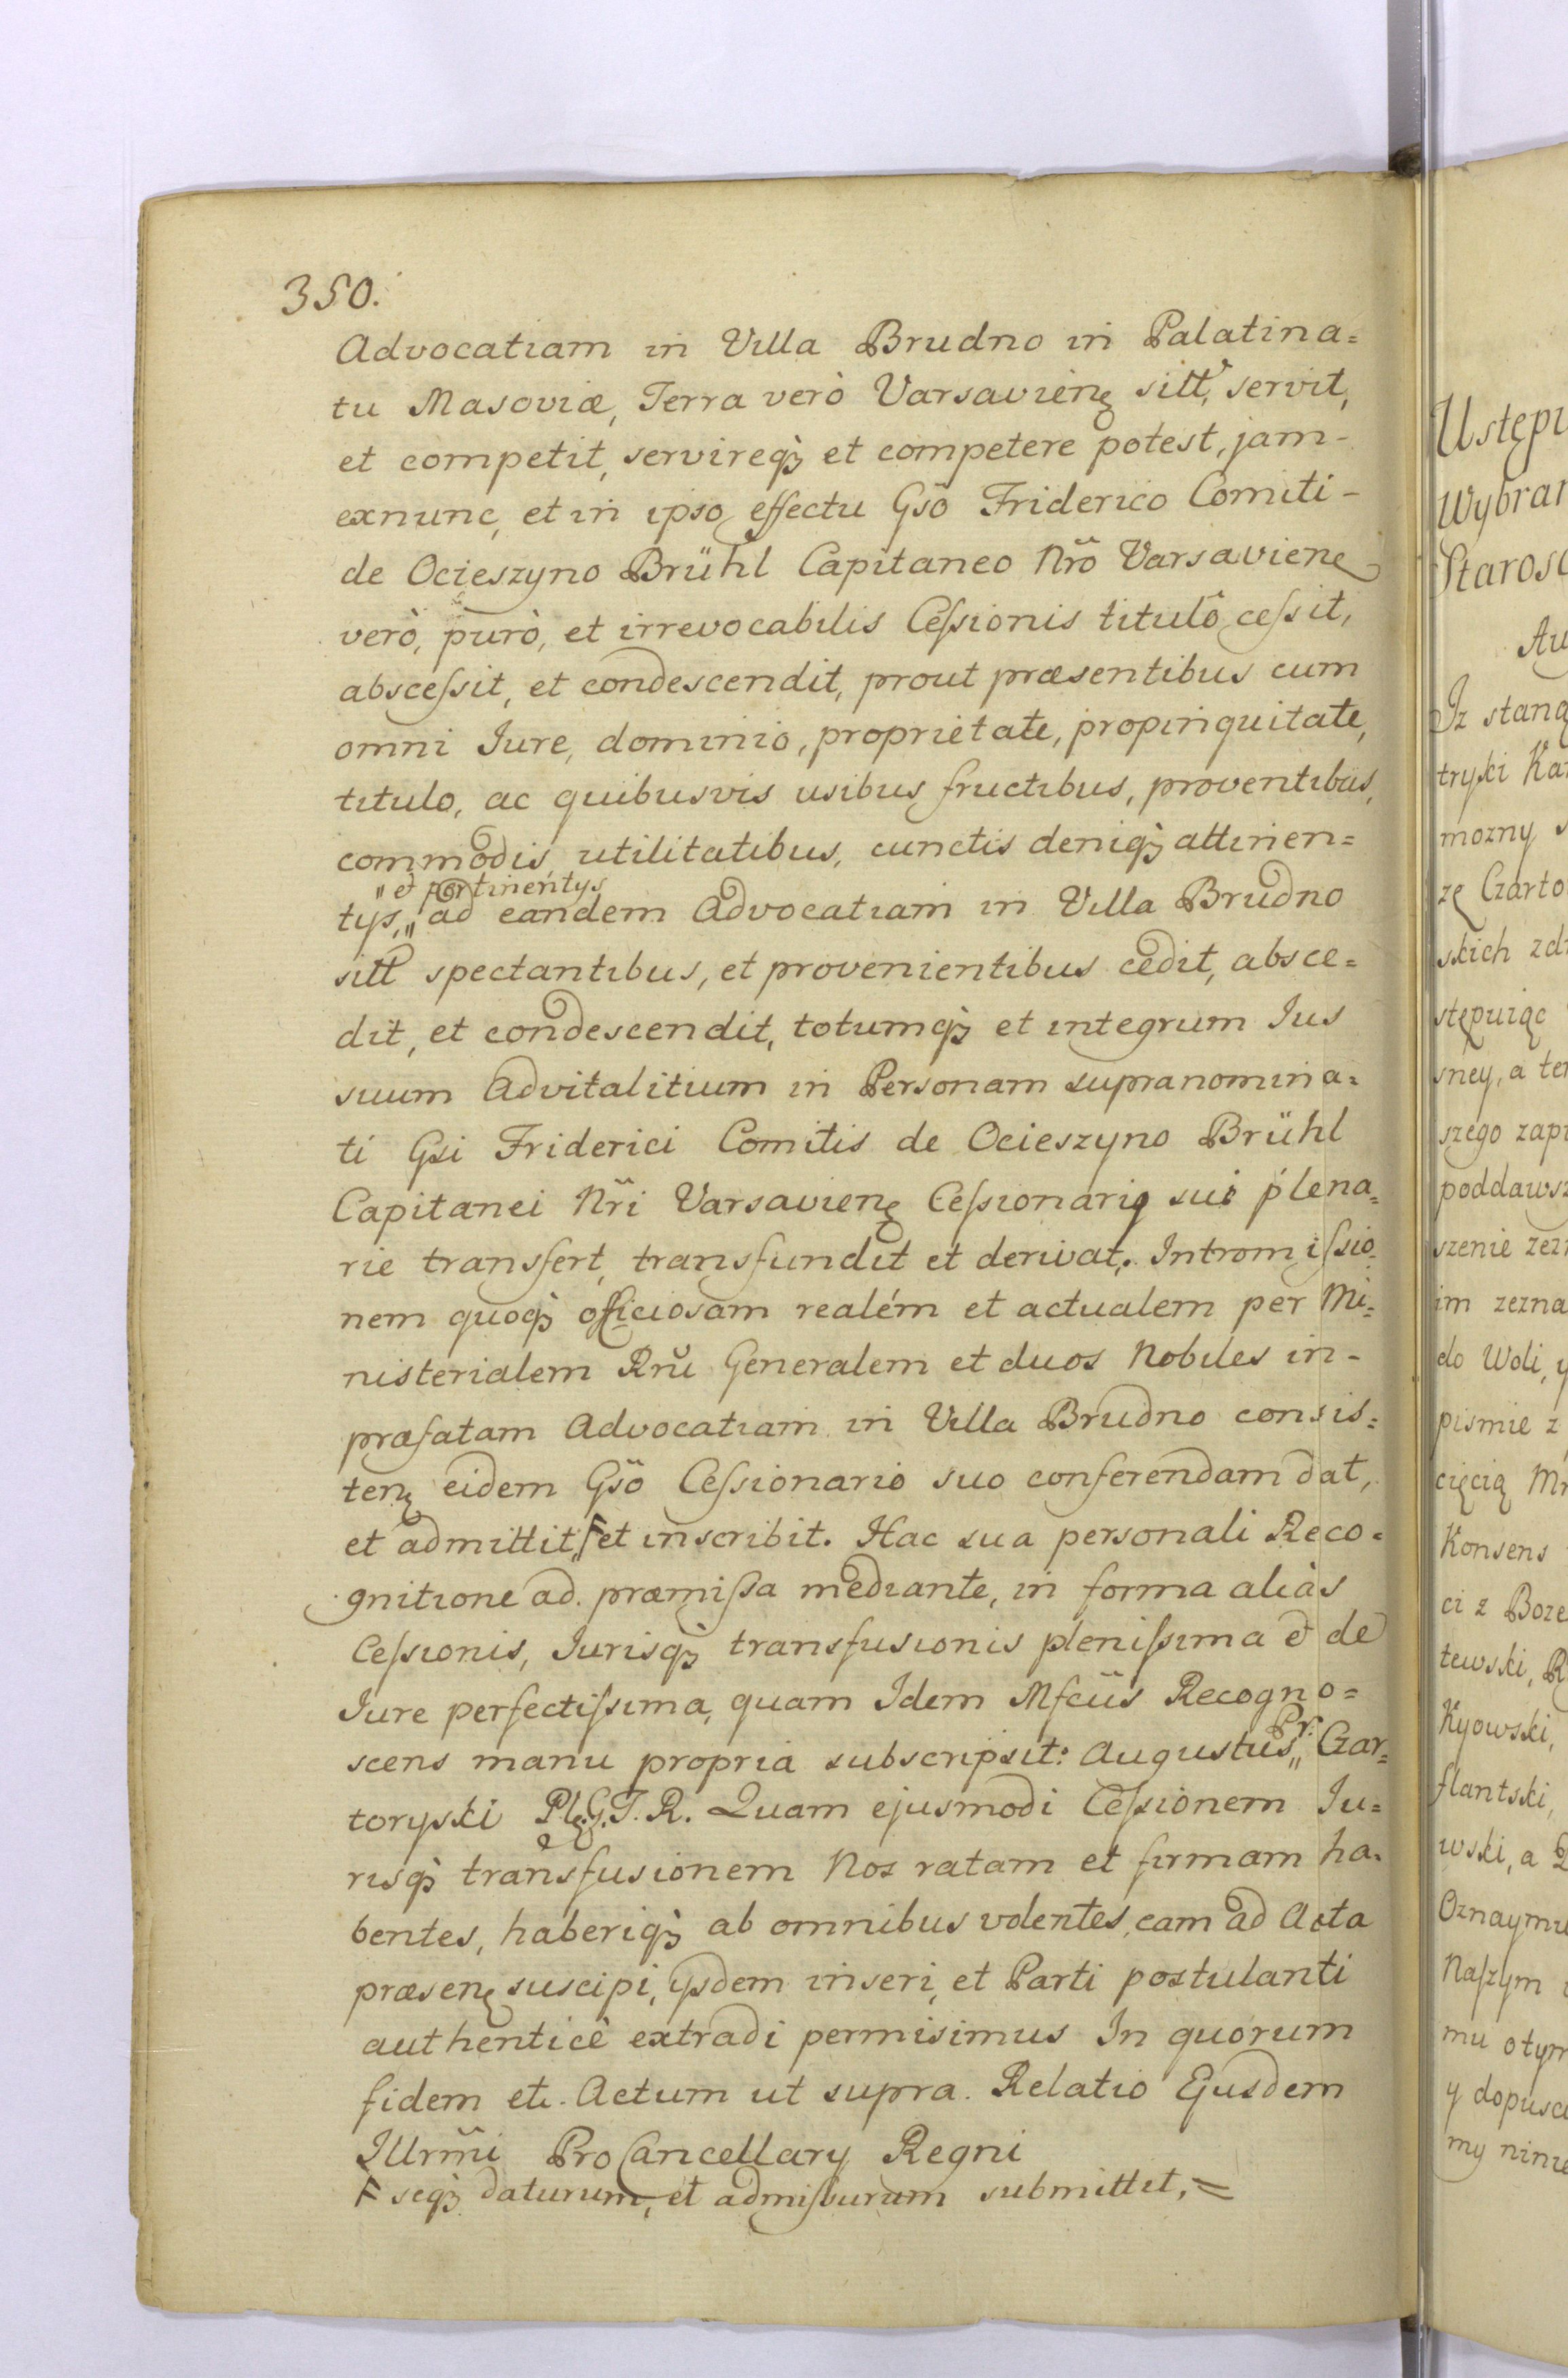 350.
Advocatiam in Villa Brudno in Palatina=
tu Masoviæ, Terra verò Varsavienȩ sitt, servit,
et competit, servireqȝ et competere potest, jam-
exnunc, et in ipso effectu Gsö Friderico Comiti-
de Ocieszyno Brühl Capitaneo Nrõ Varsavienȩ
verò, purò, et irrevocabilis Ceſsionis titulô ceſsit,
absceſsit, et condescendit, prout præsentibus cum
omni Jure, dominio, proprietate, propinquitate,
titulo, ac quibusvis usibus fructibus, proventibus,
commodis, utilitatibus, cunctis deniqȝ attinen=
" et pertinentys
tys, " ad eandem Advocatiam in Villa Brudno
sitt spectantibus, et provenientibus cedit, absce=
dit, et condescendit, totumqȝ et integrum Jus
suum Advitalitium in Personam supranomina=
ti Gsi Friderici Comitis de Ocieszyno Brühl
Capitanei Nr̃i Varsavienȩ Ceſsionarij sui plena=
rie transfert, transfundit et derivat. Intromiſsio=
nem quoqȝ officiosam realém et actualem per Mi=
nisterialem Rrũ Generalem et duos Nobiles in-
præfatam Advocatiam in Villa Brudno consis=
tenȩ eidem Gsö Ceſsionario suo conferendam dat,
et admittit, F et inscribit. Hac sua personali Reco=
gnitione ad præmiſsa mediante, in forma aliàs
Ceſsionis, Jurisqȝ transfusionis pleniſsima et de
Jure perfectiſsima, quam Idem Mfcüs Recogno=
scens manu propria subscripsit: Augustus " Pr. Czar=
toryski Plȩ. G. T. R. Quam ejusmodi Ceſsionem Ju=
risqȝ transfusionem Nos ratam et firmam ha=
bentes, haberiqȝ ab omnibus volentes, eam ad Acta
præsenȩ suscipi, ysdem inseri, et Parti postulanti
authenticè extradi permisimus In quorum
fidem etc. Actum ut supra. Relatio Ejusdem
Illrm̃i ProCancellary Regni
F seqȝ daturum, et admiſsurum submittit, =
Ustępu
Wybran
Starosc
Au
Iz staną
tryski Ka
mozny s
zę Czarto
skich zdr
stępuiąc
sney, a ter
szego zapi
poddawsz
szenie zezn
im zezna
do Woli, y
pismie z
cięcią Mr
Konsens
ci z Boze
tewski, R
Kyowski,
flantski,
wski, a
Oznaymu
Naſzym
mu o tym
y dopusc
my ninie